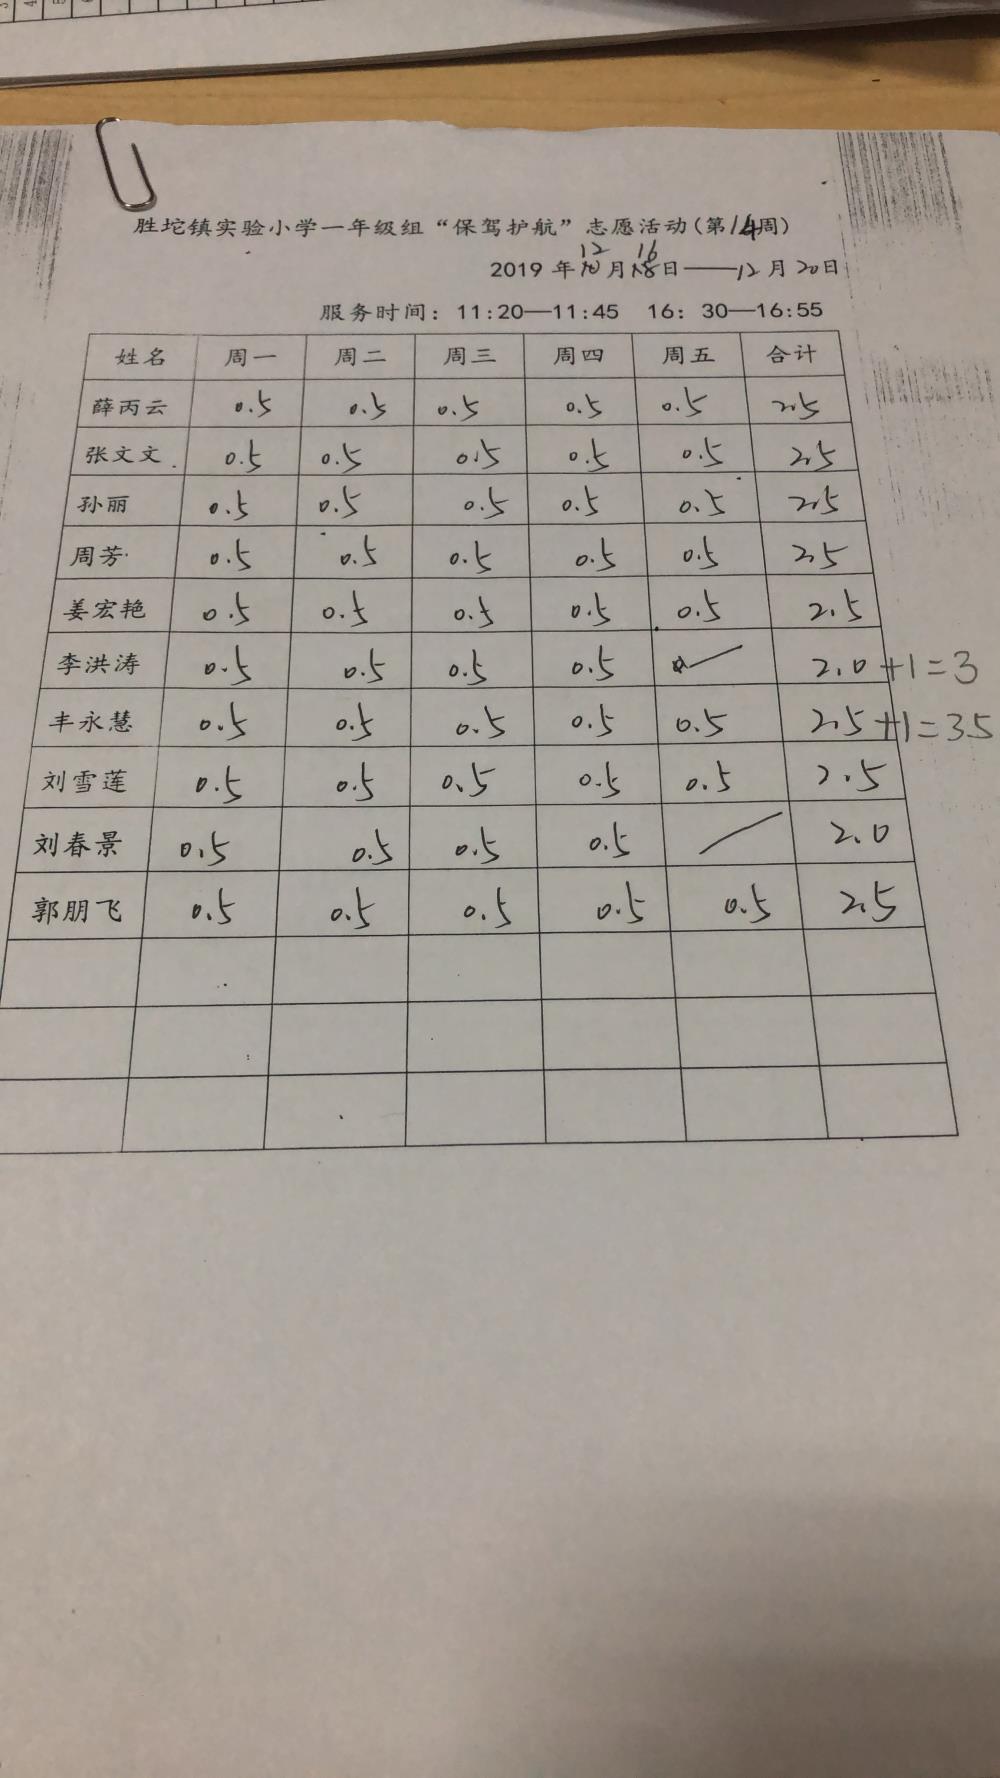 胜坨镇实验小学一年级组“保驾护航”志愿活动(第14周)
2019 年12月16日——12月20日
服务时间：11:20—11:45 16：30—16:55
姓名 周一 周二 周三 周四 周五 合计
薛丙云 0.5 0.5 0.5 0.5 0.5 2.5
张文文 0.5 0.5 0.5 0.5 0.5 2.5
孙丽 0.5 0.5 0.5 0.5 0.5 2.5
周芳 0.5 0.5 0.5 0.5 0.5 2.5
姜宏艳 0.5 0.5 0.5 0.5 0.5 2.5
李洪涛 0.5 0.5 0.5 0.5 2.0+1=3
丰永慧 0.5 0.5 0.5 0.5 0.5 2.5+1=3.5
刘雪莲 0.5 0.5 0.5 0.5 0.5 2.5
刘春景 0.5 0.5 0.5 0.5 2.0
郭朋飞 0.5 0.5 0.5 0.5 0.5 2.5